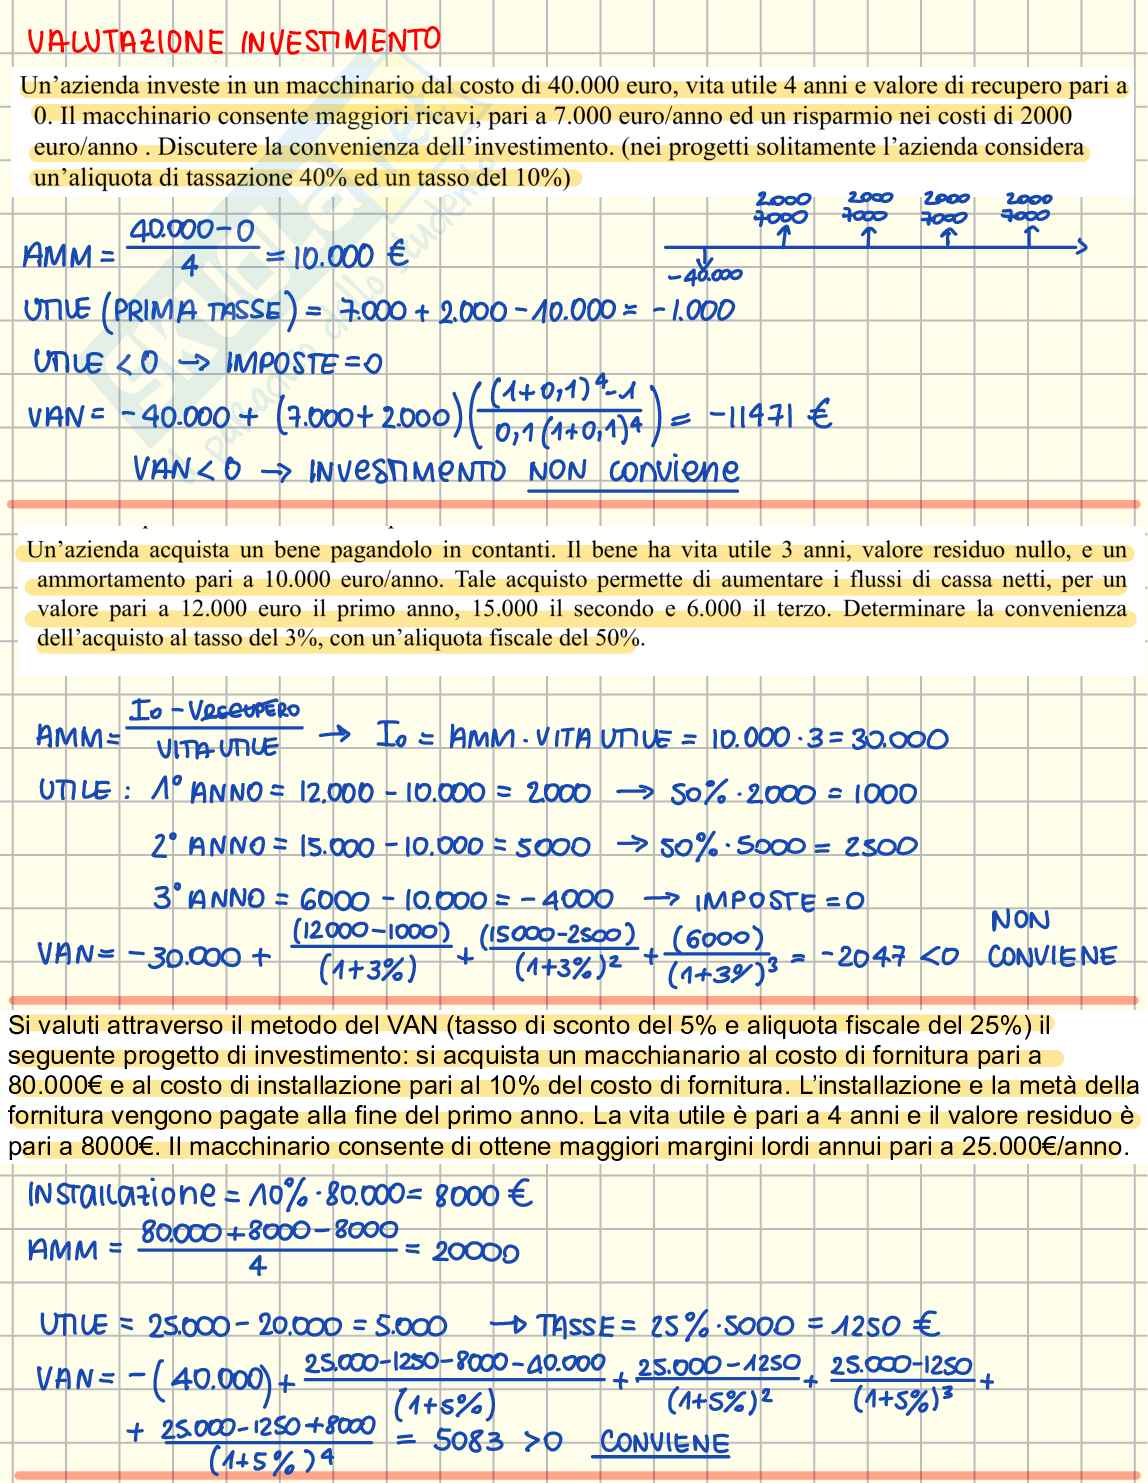 VALUTAZIONE INVESTIMENTO
Un'azienda investe in un macchinario dal costo di 40.000 euro, vita utile 4 anni e valore di recupero pari a
0. Il macchinario consente maggiori ricavi, pari a 7.000 euro/anno ed un risparmio nei costi di 2000
euro/anno . Discutere la convenienza dell'investimento. (nei progetti solitamente l'azienda considera
un'aliquota di tassazione 40% ed un tasso del 10%)
2.000 2.000 2.000 2.000
7000 7000 7000 7000
-40.000
AMM = (40.000-0)/4 = 10.000 €
UTILE (PRIMA TASSE) = 7.000 + 2.000 - 10.000 = -1.000
UTILE < 0 → IMPOSTE = 0
VAN = -40.000 + (7.000 + 2.000) (((1+0,1)^4-1)/(0,1(1+0,1)^4)) = -11471 €
VAN < 0 → INVESTIMENTO NON conviene
Un'azienda acquista un bene pagandolo in contanti. Il bene ha vita utile 3 anni, valore residuo nullo, e un
ammortamento pari a 10.000 euro/anno. Tale acquisto permette di aumentare i flussi di cassa netti, per un
valore pari a 12.000 euro il primo anno, 15.000 il secondo e 6.000 il terzo. Determinare la convenienza
dell'acquisto al tasso del 3%, con un'aliquota fiscale del 50%.
AMM = (I0 - VRECUPERO)/VITA UTILE → I0 = AMM · VITA UTILE = 10.000 · 3 = 30.000
UTILE : 1° ANNO = 12.000 - 10.000 = 2000 → 50% · 2000 = 1000
2° ANNO = 15.000 - 10.000 = 5000 → 50% · 5000 = 2500
3° ANNO = 6000 - 10.000 = -4000 → IMPOSTE = 0
VAN = -30.000 + (12000-1000)/(1+3%) + (15000-2500)/(1+3%)^2 + (6000)/(1+3%)^3 = -2047 < 0 NON CONVIENE
Si valuti attraverso il metodo del VAN (tasso di sconto del 5% e aliquota fiscale del 25%) il
seguente progetto di investimento: si acquista un macchianario al costo di fornitura pari a
80.000€ e al costo di installazione pari al 10% del costo di fornitura. L'installazione e la metà della
fornitura vengono pagate alla fine del primo anno. La vita utile è pari a 4 anni e il valore residuo è
pari a 8000€. Il macchinario consente di ottene maggiori margini lordi annui pari a 25.000€/anno.
INSTALLAZIONE = 10% · 80.000 = 8000 €
AMM = (80.000+8000-8000)/4 = 20000
UTILE = 25.000 - 20.000 = 5.000 → TASSE = 25% · 5000 = 1250 €
VAN = -(40.000) + (25.000-1250-8000-40.000)/(1+5%) + (25.000-1250)/(1+5%)^2 + (25.000-1250)/(1+5%)^3 +
+ (25.000-1250+8000)/(1+5%)^4 = 5083 > 0 CONVIENE